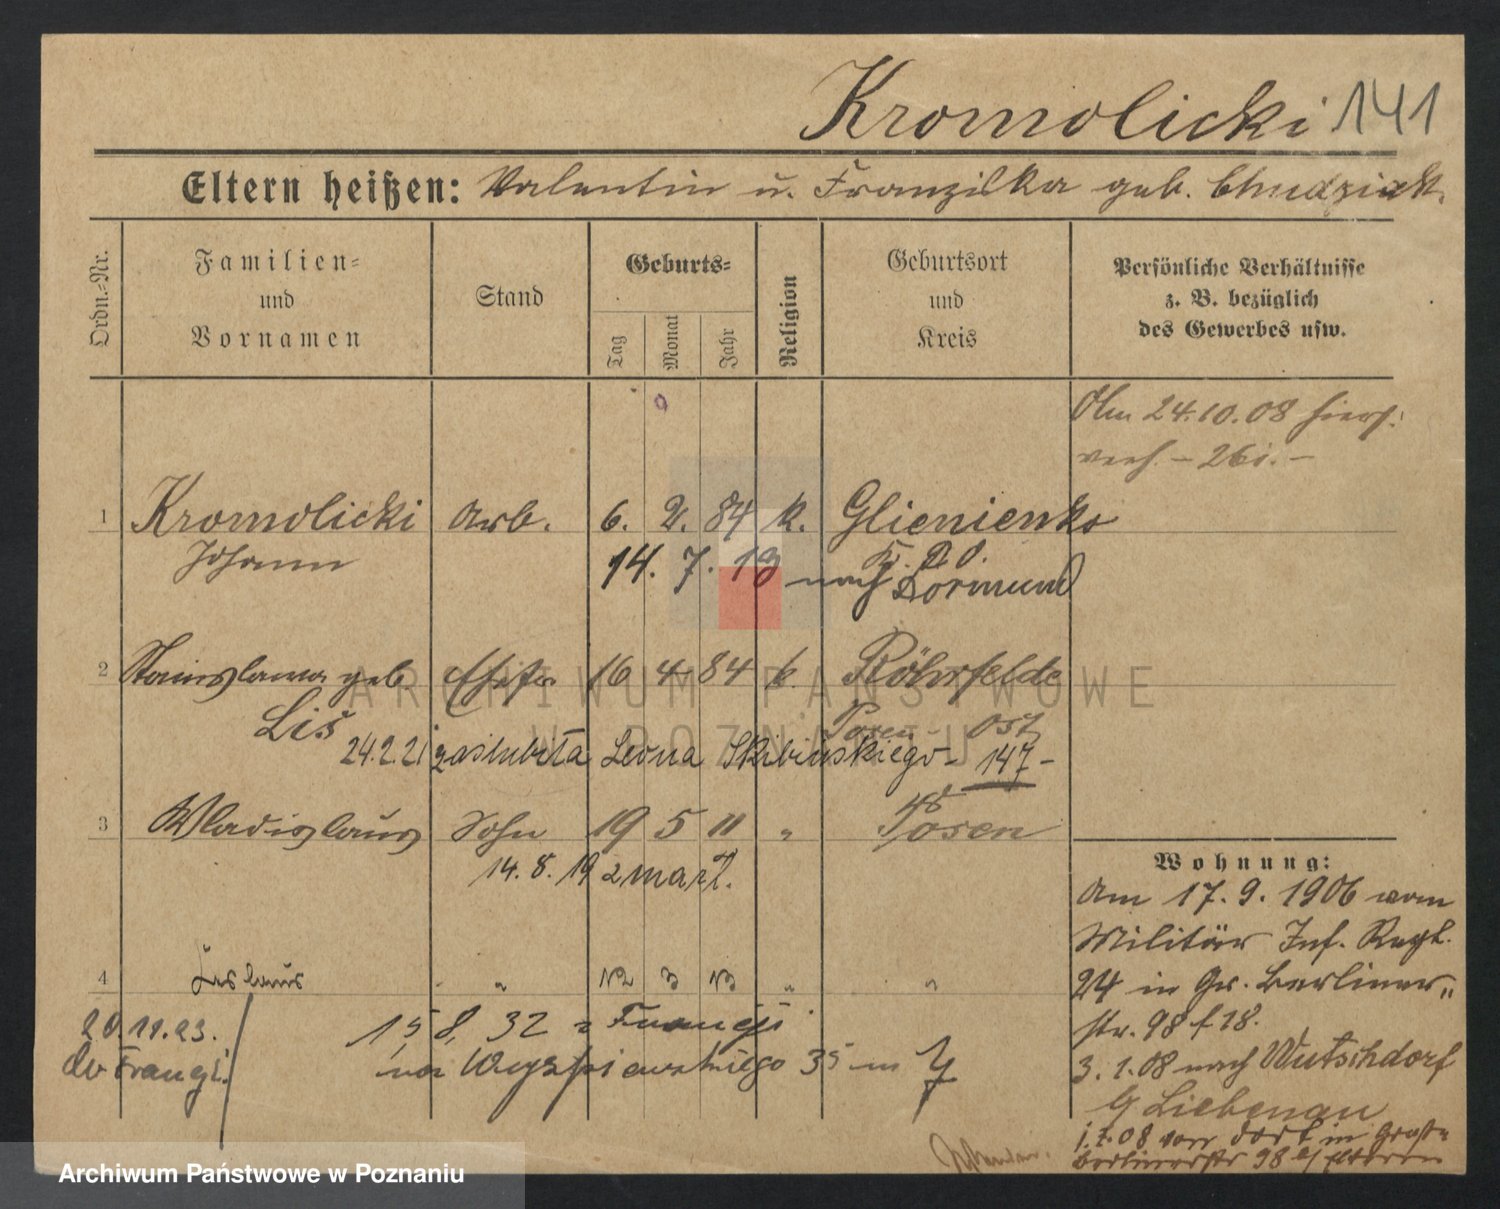 Kromolicki 141
Eltern heißen: Valentin u. Franziska geb. Chudziak
Ordn.-Nr.
Familien-
und
Vornamen
Stand
Geburts-
Tag
Monat
Jahr
Religion
Geburtsort
und
Kreis
Persönliche Verhältnisse
z. B. bezüglich
des Gewerbes usw.
Am 24.10.08 hiers.
verh. – 261. –
1 Kromolicki Arb. 6. 2. 84 k. Glienienko
Johann 14. 7. 19 nach Dormund
2 Stanislawa geb. Ehefr 16 4 84 k. Röhrfelde
Lis Posen Ost
24.2.21 zaslubiła Leona Skibińskiego – 147 –
3 Wladislaus Sohn 19 5 11 " Posen
14. 8. 19 mart.
Wohnung:
Am 17. 9. 1906 vom
Militär Inf. Regt.
24 in Gr. Berliner-
str. 98 f 18.
3. 1. 08 nach Wutschdorf
Liebenau
1.7.08 von dort in Große
Berlinerstr 98 b/Eltern
4 Zeslaus " " 12 3 13 " "
20.11.23. 15 8. 32 z Francji
do Francji na Wyspiańskiego 35 m 7
ARCHIWUM PAŃSTWOWE
W POZNANIU
Archiwum Państwowe w Poznaniu